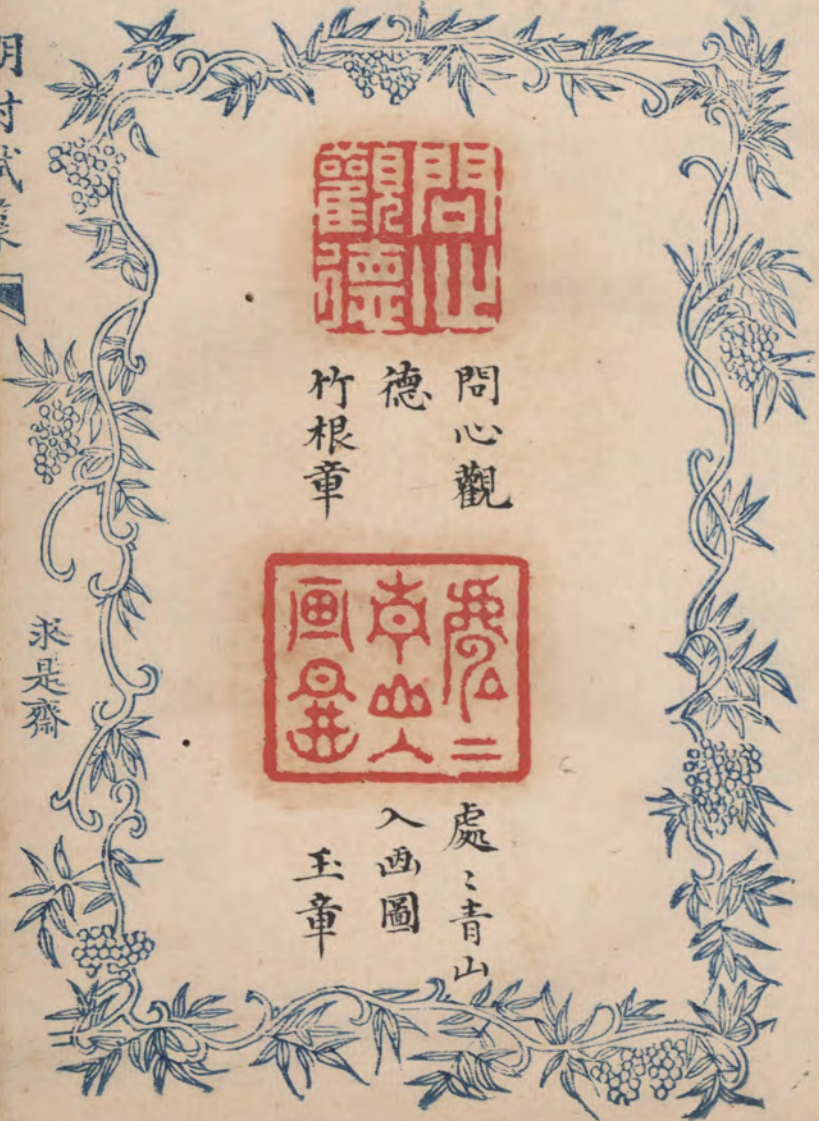 問心
觀德
問心觀
德
竹根章
處二
青山入
画圖
處〻青山
入画圖
玉章
求是齋